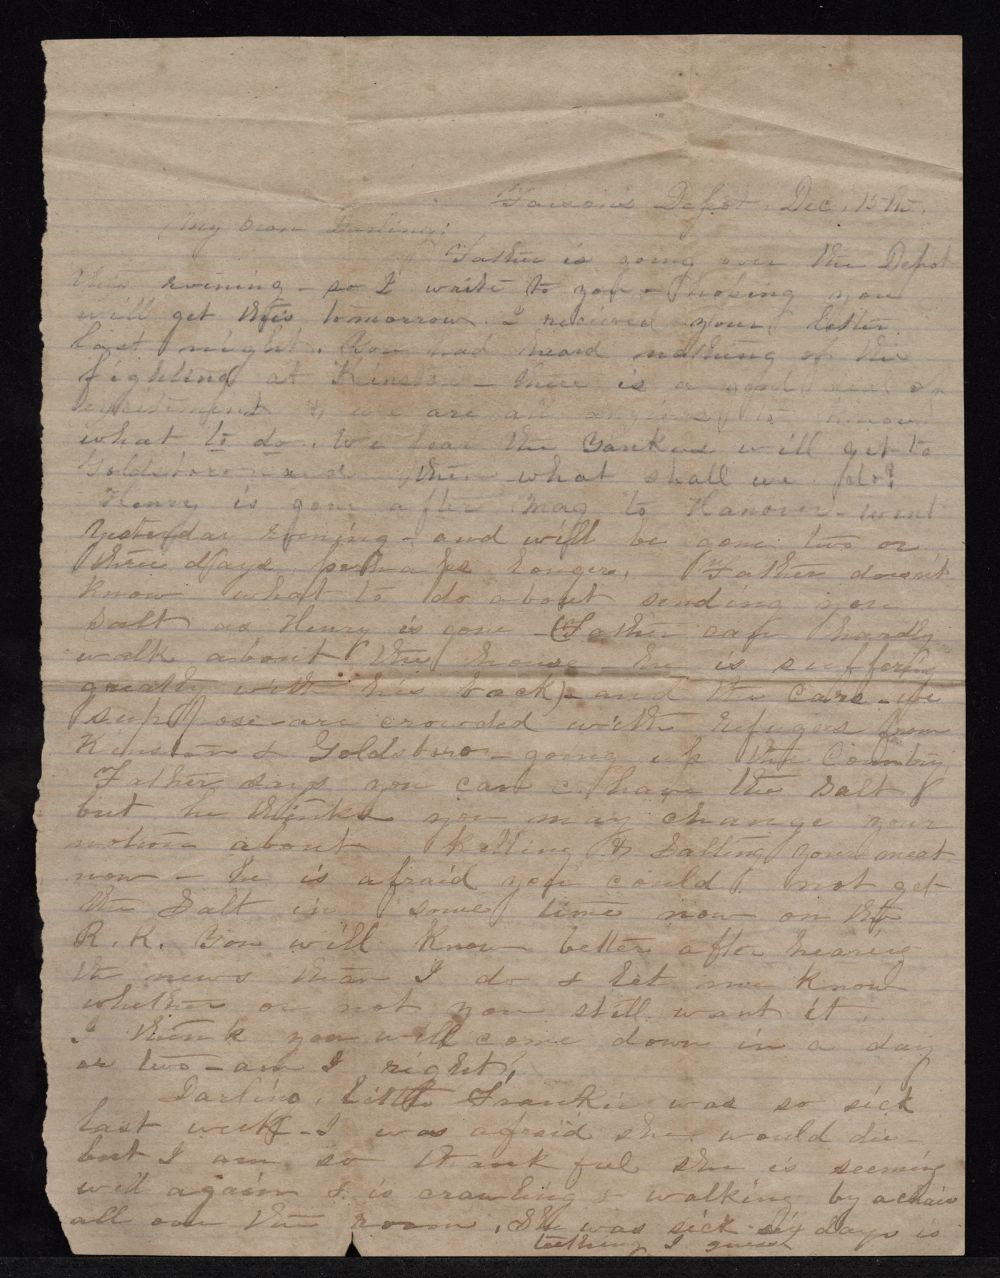 Faison's Depot, Dec, 15th,
My Dear Darling:
Father is going over the Depot
this evening - so I write to you - hoping you
will get this tomorrow. I recieved your letter
last night. You had heard nothing of the
fighting at Kinston - there is a good deal of
excitement & we are all anxious to know
what to do. We fear the Yankees will get to
Goldsboro next then what shall we do?
Henry is gone after Mag to Hanover - went
yesterday evening - and will be gone two or
three days, perhaps longer. Father doesn't
know what to do about sending you
Salt as Henry is gone - (Father can hardly
walk about the house - he is suffering
greatly with his back) - and the cars - we
suppose - are crowded with refugees from
Kinston & Goldsboro - going up the Country
Father says you can have the Salt
but he thinks you may change your
notion about killing & Salting your meat
now - he is afraid you could not get
the Salt in some time now on the
R. R. You will know better after hearing
the news than I do & let me know
whether or not you still want it.
I think you will come down in a day
or two - am I right?
Darling, little Frankie was so sick
last week - I was afraid she would die -
but I am so thankful she is seeming
well again & is crawling & walking by a chair
all over the room. She was sick six days is
teething I guess